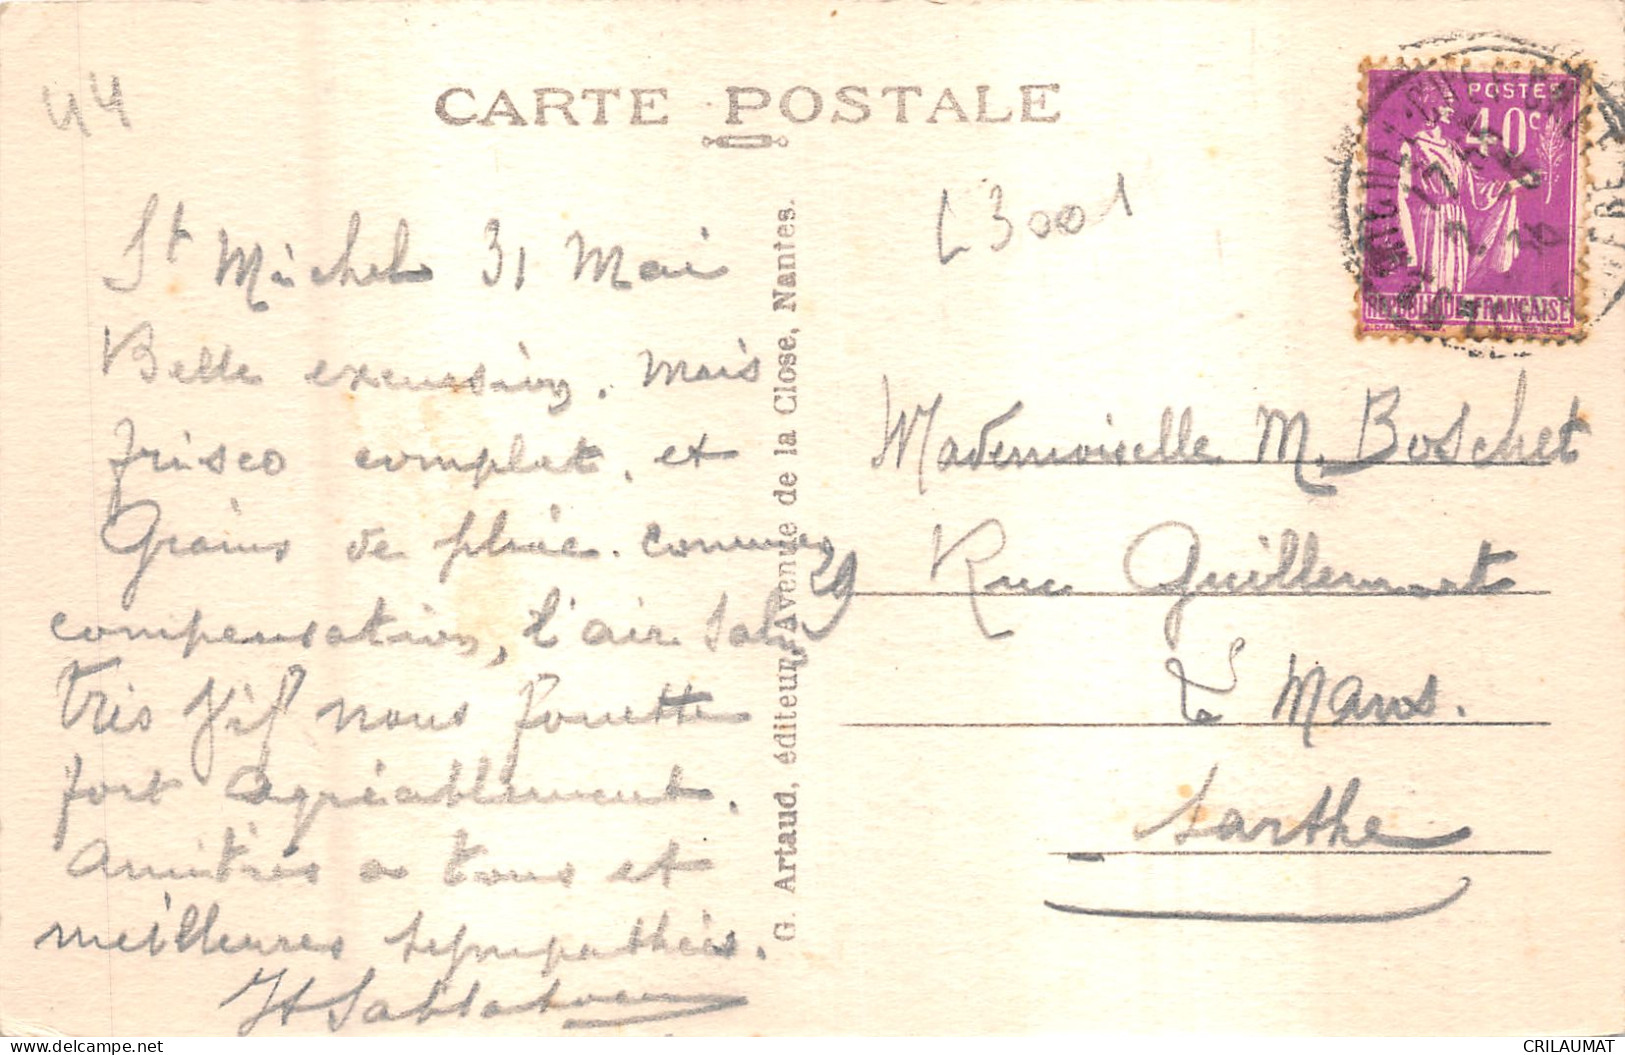 44
CARTE POSTALE
L3001
POSTES
40c
REPUBLIQUE FRANÇAISE
St Michel 31 Mai
Belle excursion. Mais
frisco complet, et
Grains de pluie. comme
compensation, l'air salin
très vif nous fouette
fort agréablement.
Amitiés a tous et
meilleures sympathies.
G. Artaud, éditeur, Avenue de la Close, Nantes.
Mademoiselle M. Boschet
29 Rue Guillemot
Le Mans.
Sarthe
CRILAUMAT